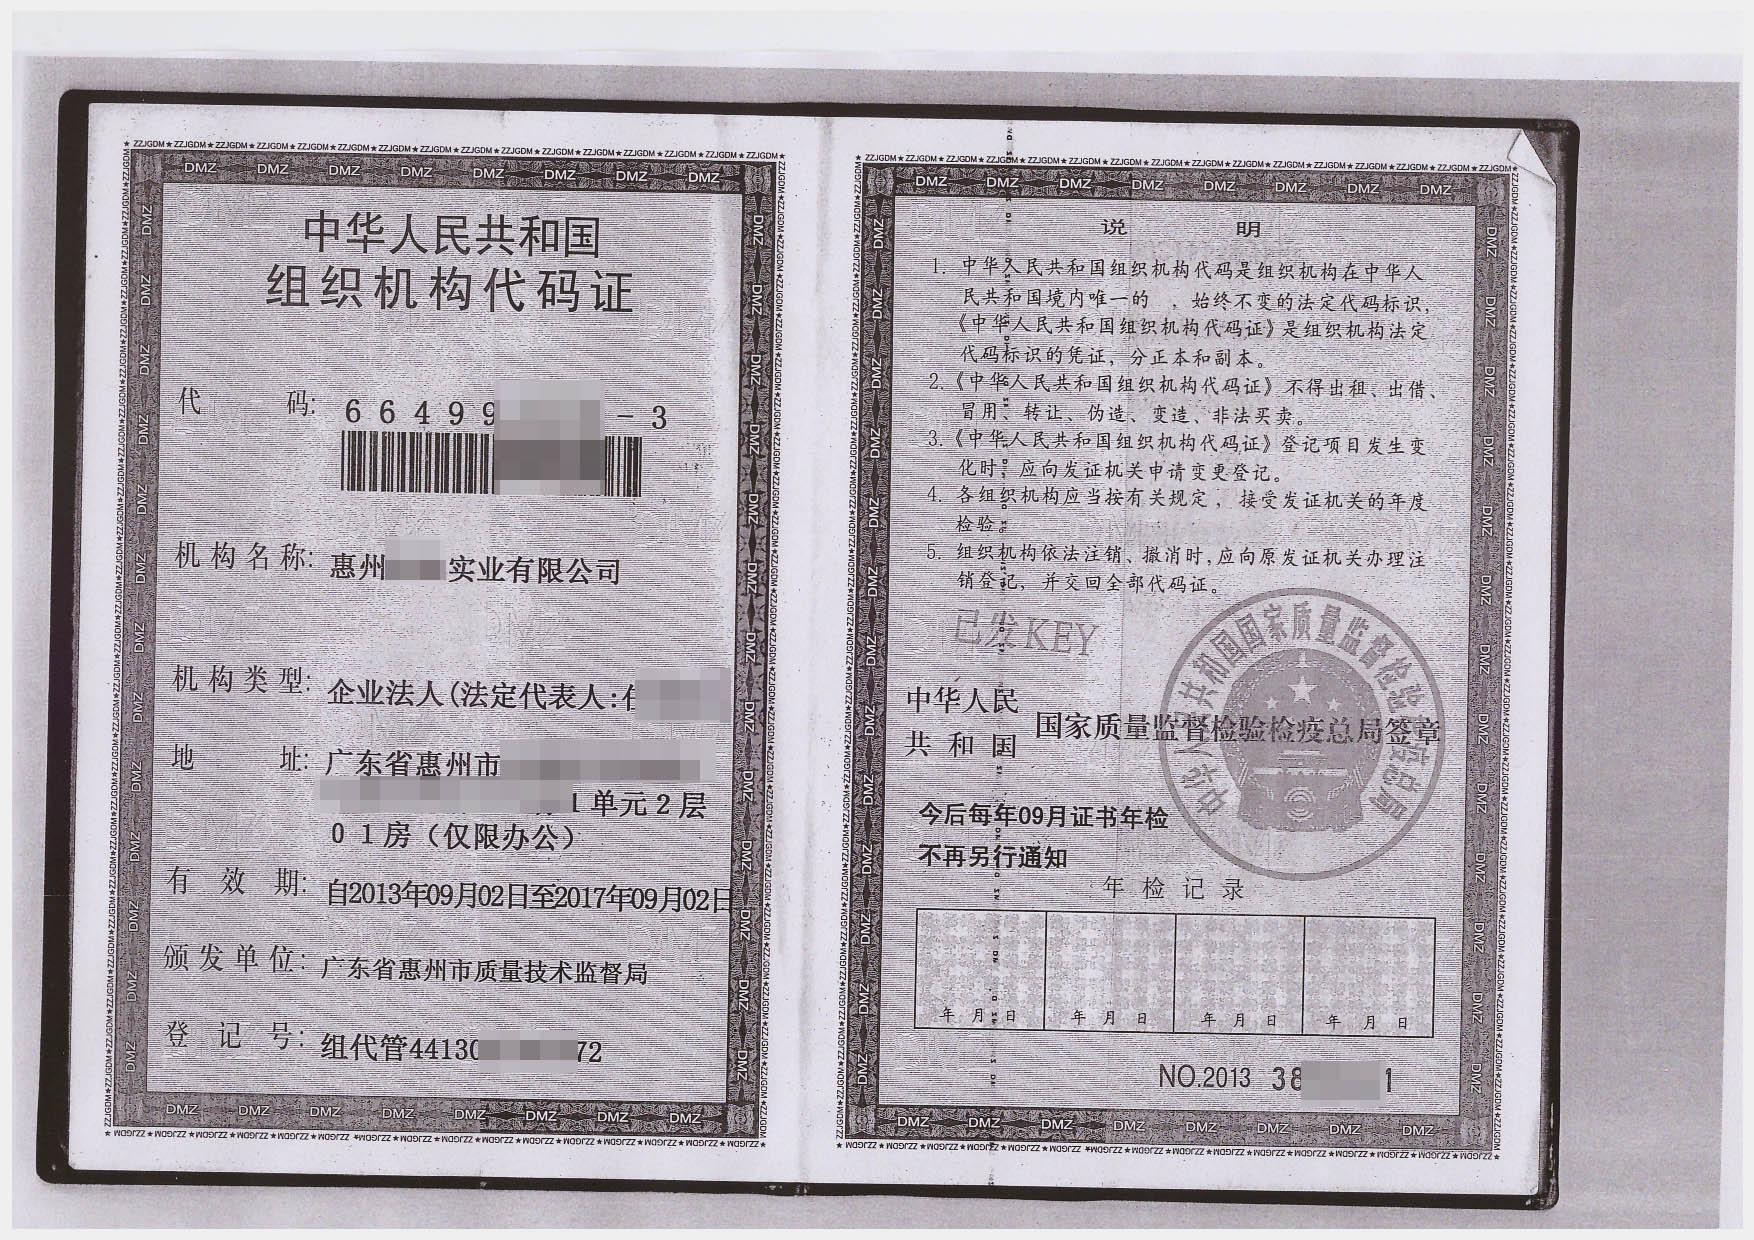 中华人民共和国
组织机构代码证
代 码: 66499 -3
机构名称: 惠州 实业有限公司
机构类型: 企业法人(法定代表人:
地 址: 广东省惠州市
1单元2层
01房（仅限办公）
有 效 期: 自2013年09月02日至2017年09月02日
颁发单位: 广东省惠州市质量技术监督局
登 记 号: 组代管44130 72
说 明
1. 中华人民共和国组织机构代码是组织机构在中华人
民共和国境内唯一的 ，始终不变的法定代码标识，
《中华人民共和国组织机构代码证》是组织机构法定
代码标识的凭证，分正本和副本。
2.《中华人民共和国组织机构代码证》不得出租、出借、
冒用、转让、伪造、变造、非法买卖。
3.《中华人民共和国组织机构代码证》登记项目发生变
化时，应向发证机关申请变更登记。
4. 各组织机构应当按有关规定，接受发证机关的年度
检验。
5. 组织机构依法注销、撤消时,应向原发证机关办理注
销登记，并交回全部代码证。
已发KEY
中华人民
共和国
国家质量监督检验检疫总局签章
中华人民共和国国家质量监督检验检疫总局
今后每年09月证书年检
不再另行通知
年检记录
年 月 日 年 月 日 年 月 日 年 月 日
NO.2013 38 1
DMZ
ZZJGDM★ZZJGDM★ZZJGDM